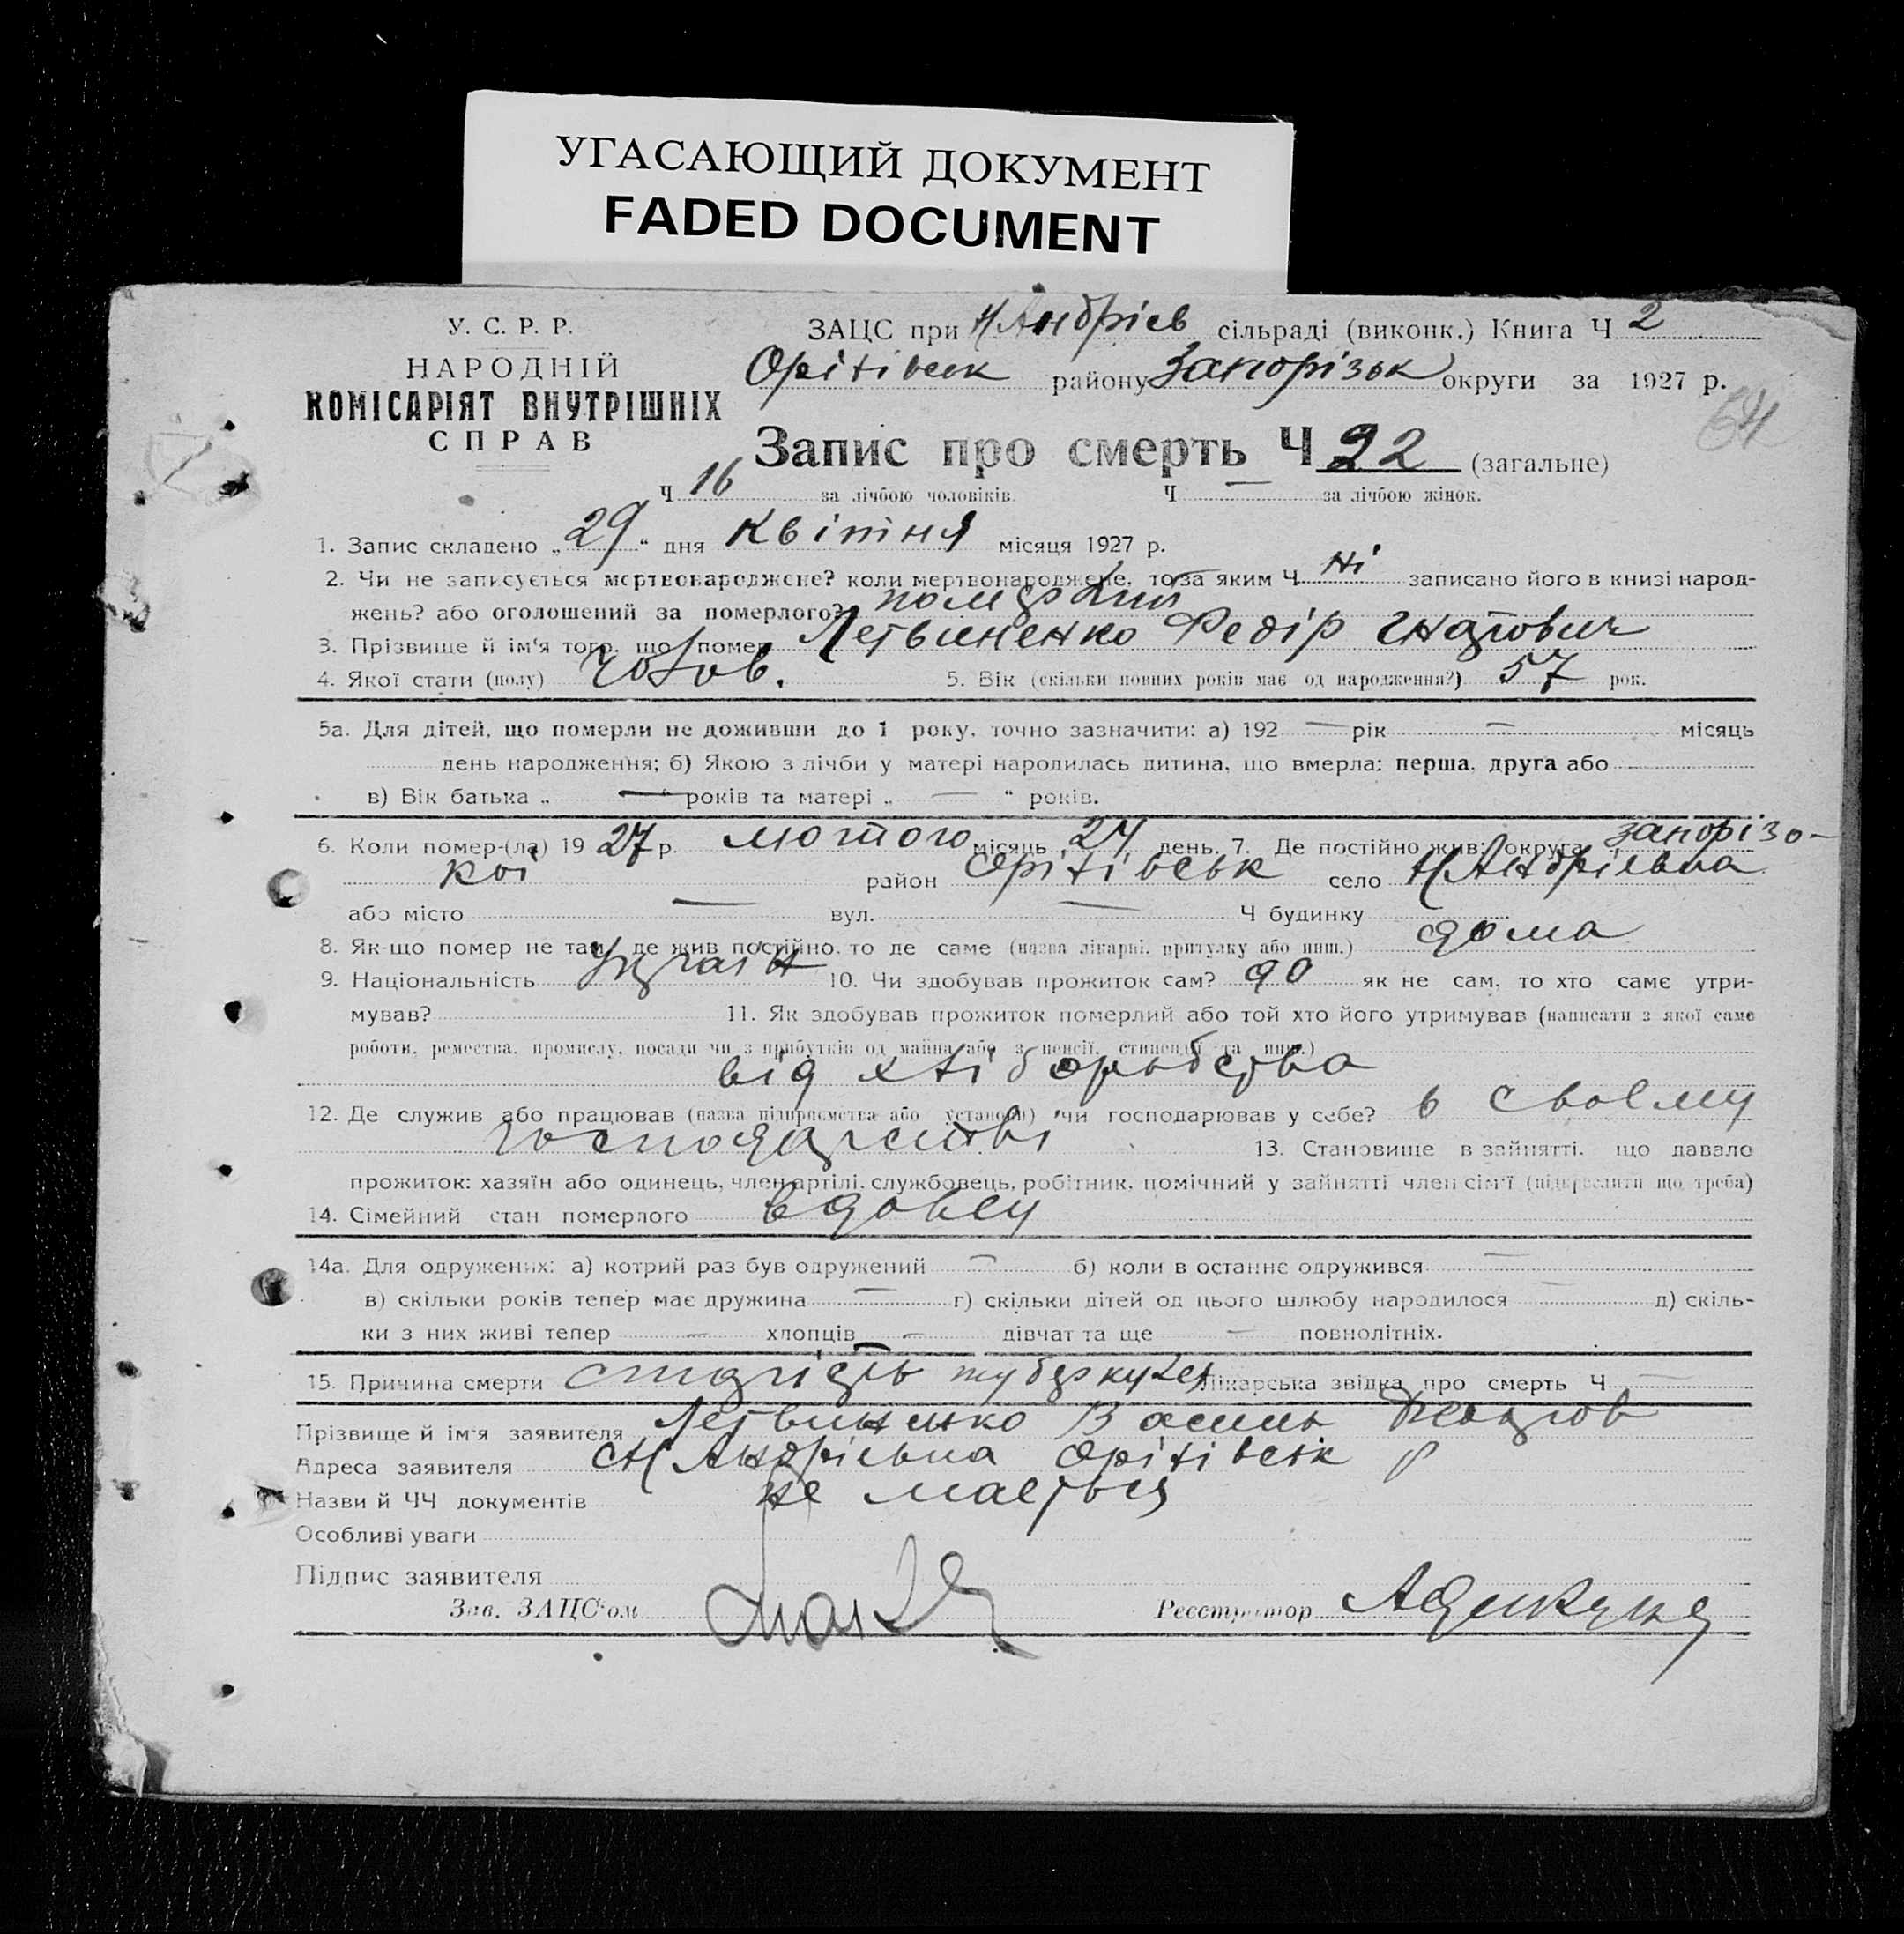 УГАСАЮЩИЙ ДОКУМЕНТ
FADED DOCUMENT
У. С. Р. Р.
НАРОДНІЙ
КОМІСАРІЯТ ВНУТРІШНІХ
СПРАВ
ЗАЦС при Н Андріев сільраді (виконк.) Книга Ч 2
Оріхівськ району Запорізьк округи за 1927 р.
64
Запис про смерть Ч 22 (загальне)
Ч 16 за лічбою чоловіків. Ч — за лічбою жінок.
1. Запис складено „29“ дня квітня місяця 1927 р.
2. Чи не записується мертвонароджене? коли мертвонароджене, то за яким Ч ні записано його в книзі народ-
жень? або оголошений за померлого?
3. Прізвище й ім'я того, що помер Летвиненко Федір Гнатович
4. Якої стати (полу) чолов. 5. Вік (скільки повних років має од народження?) 57 рок.
5а. Для дітей, що померли не доживши до 1 року, точно зазначити: а) 192 — рік — місяць
день народження; б) Якою з лічби у матері народилась дитина, що вмерла: перша, друга або
в) Вік батька „ — “ років та матері „ — “ років.
6. Коли помер-(ла) 1927 р. лютого місяць 24 день. 7. Де постійно жив: округа запорізь-
кої район Оріхівськ село Н Андрієвка
або місто — вул. — Ч будинку
8. Як-що помер не там, де жив постійно, то де саме (назва лікарні, притулку або инш.) дома
9. Національність Україн 10. Чи здобував прожиток сам? до як не сам, то хто саме утри-
мував? 11. Як здобував прожиток померлий або той хто його утримував (написати з якої саме
роботи, ремества, промислу, посади чи з прибутків од майна або з пенсії, стипендії та инш.)
від хліборобства
12. Де служив або працював (назва підприємства або установи) чи господарював у себе? в своєму
господарстві 13. Становище в зайнятті, що давало
прожиток: хазяїн або одинець, член артілі, службовець, робітник, помічний у зайнятті член сім'ї (підкреслити що треба)
14. Сімейний стан померлого вдовец
14а. Для одружених: а) котрий раз був одружений — б) коли в останнє одружився —
в) скільки років тепер має дружина — г) скільки дітей од цього шлюбу народилося — д) скіль-
ки з них живі тепер — хлопців — дівчат та ще — повнолітніх.
15. Причина смерти старість туберкулез Лікарська звідка про смерть Ч —
Прізвище й ім'я заявителя Летвиненко Василь
Адреса заявителя с Н Андрієвка Оріхівськ р
Назви й ЧЧ документів не мається
Особливі уваги
Підпис заявителя
Зав. ЗАЦС'ом
Реєстратор